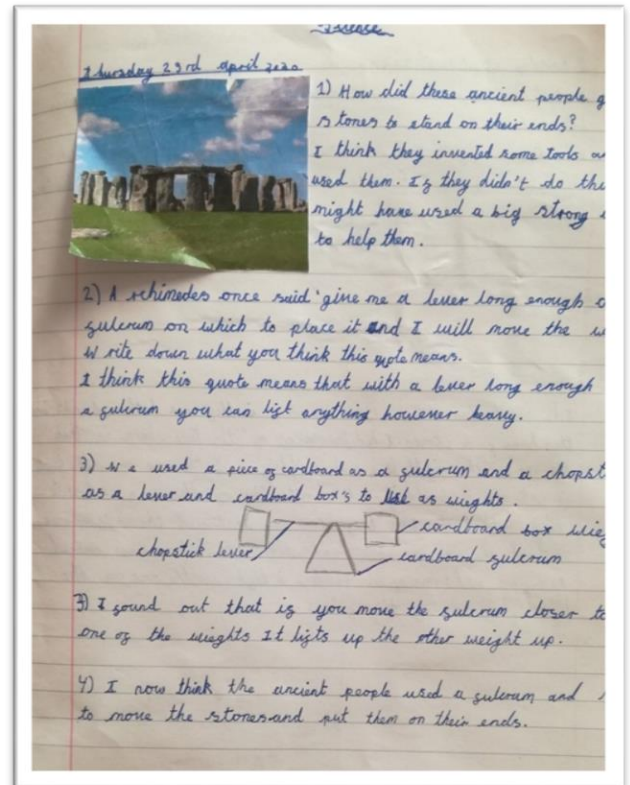 Science
Thursday 23rd april 2020
1) How did these ancient people g
stones to stand on their ends?
I think they invented some tools
used them. If they didn't do the
might have used a big strong
to help them.
2) Archimedes once said 'give me a lever long enough
fulcrum on which to place it and I will move the
Write down what you think this quote means.
I think this quote means that with a lever long enough
a fulcrum you can lift anything however heavy.
3) We used a piece of cardboard as a fulcrum and a chopst
as a lever and cardboard box's to as wieghts.
cardboard box wieg
chopstick lever
cardboard fulcrum
3) I found out that if you move the fulcrum closer to
one of the wieghts It lifts up the other weight up.
4) I now think the ancient people used a fulcrum and
to move the stones and put them on their ends.